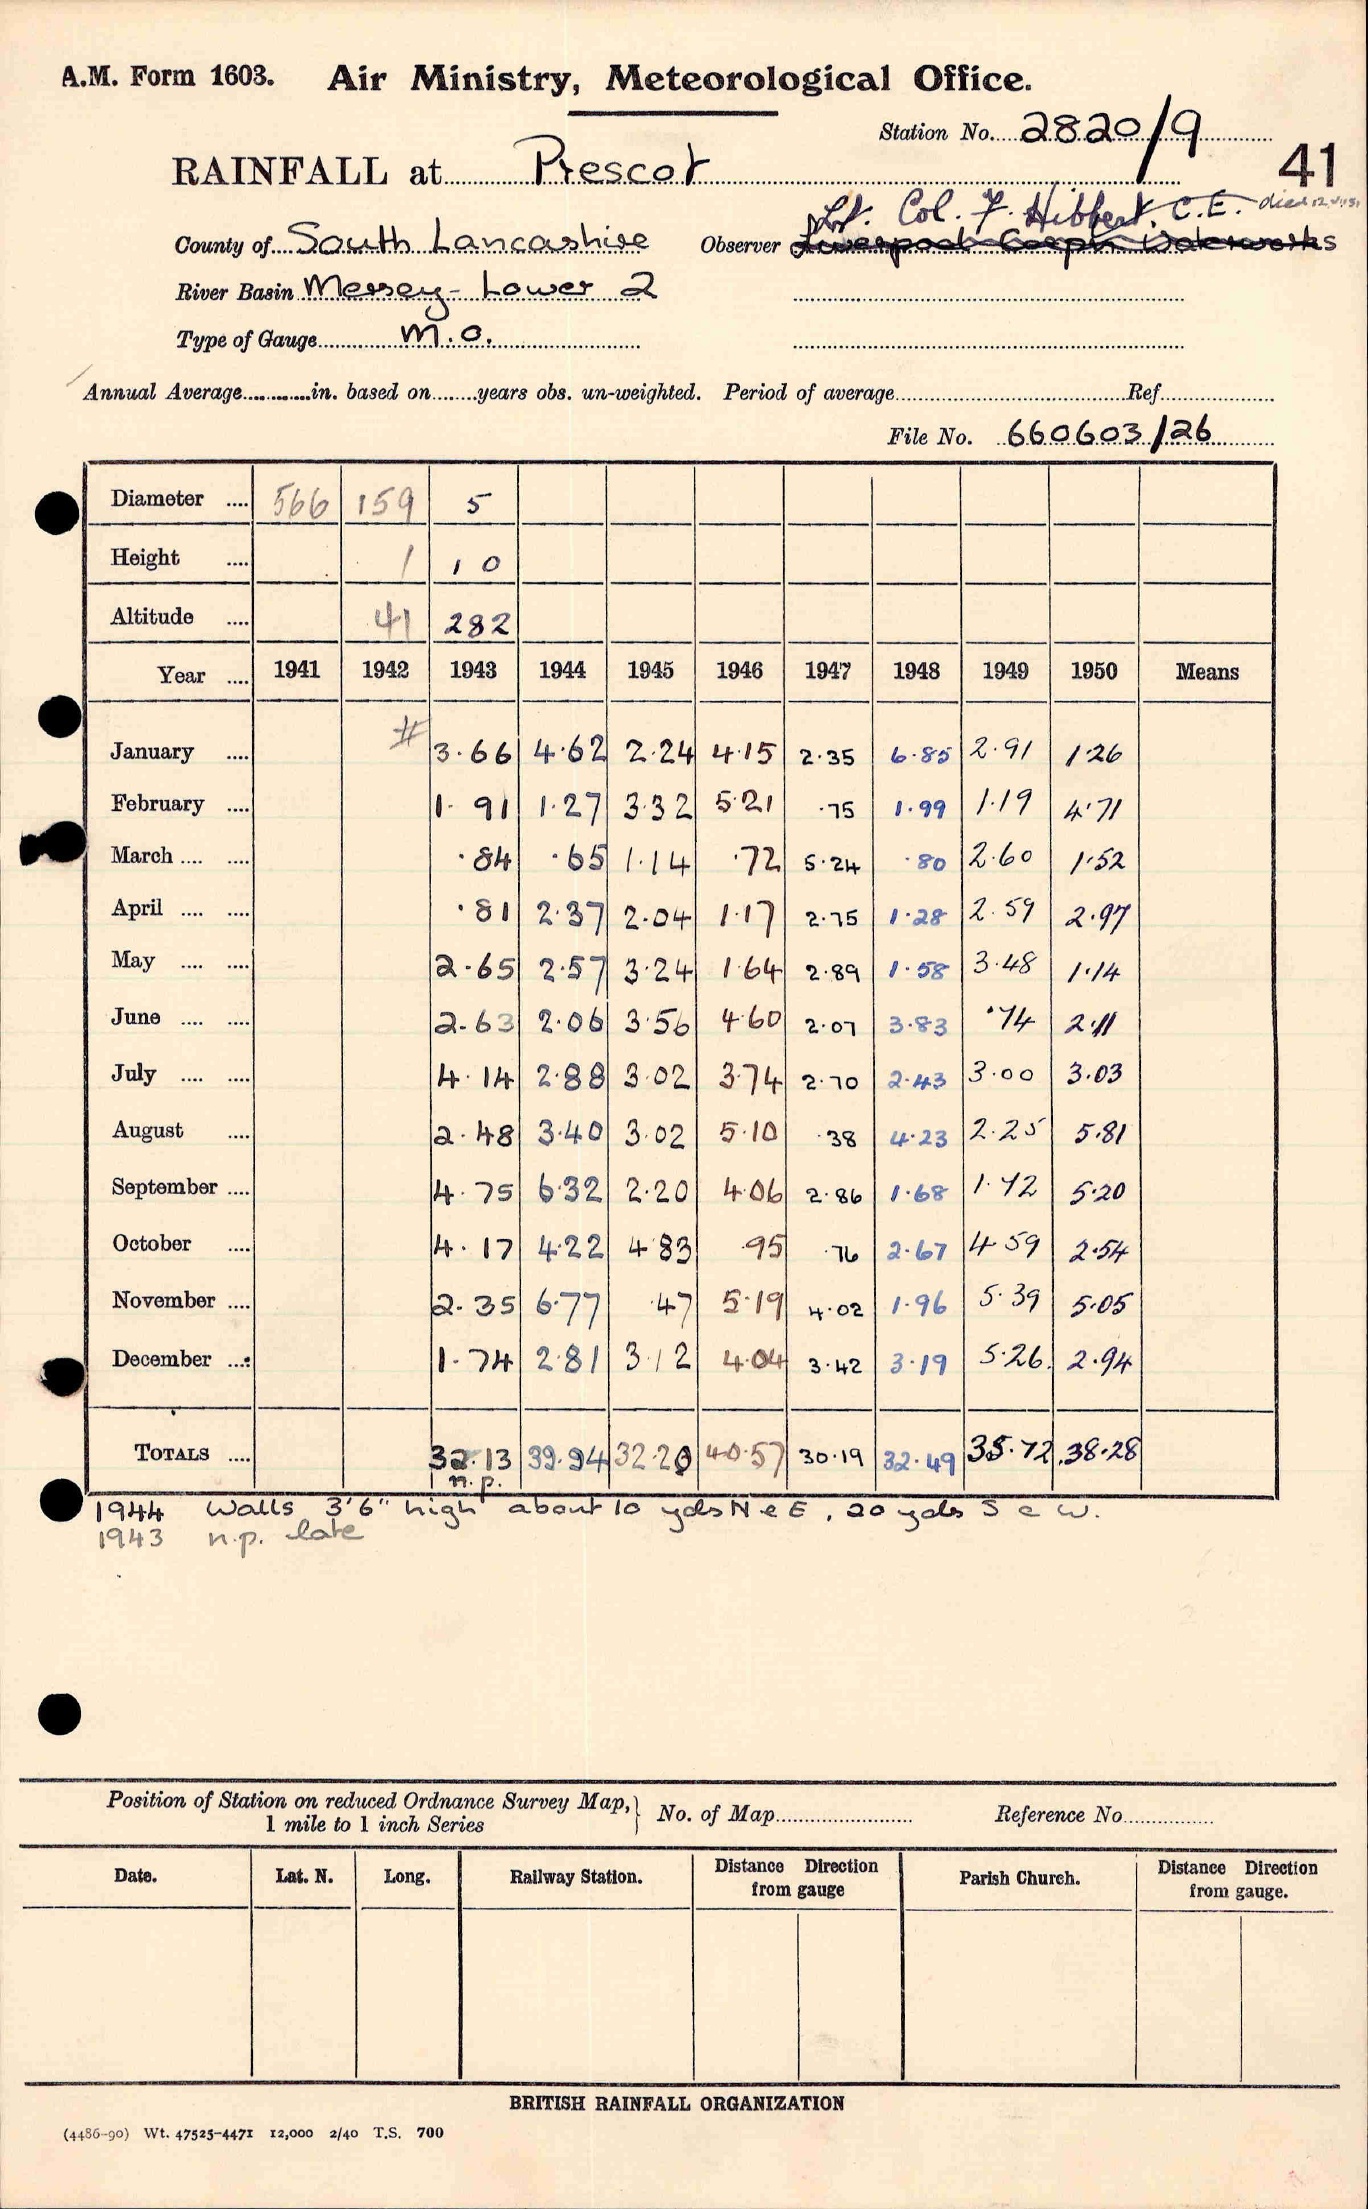 A.M. Form 1603. Air Ministry, Meteorological Office.
Station No. 2820/9
41
RAINFALL at Prescot
Lt. Col. F. Hibbert, C.E. died
County of South Lancashire Observer Liverpool Corpn Waterworks
River Basin Mersey - Lower 2
Type of Gauge M.O.
Annual Average in. based on years obs. un-weighted. Period of average Ref
File No. 660603/26
Diameter 566 159 5
Height 1 1 0
Altitude 41 282
Year 1941 1942 1943 1944 1945 1946 1947 1948 1949 1950 Means
January # 3.66 4.62 2.24 4.15 2.35 6.85 2.91 1.26
February 1.91 1.27 3.32 5.21 .75 1.99 1.19 4.71
March .84 .65 1.14 .72 5.24 .80 2.60 1.52
April .81 2.37 2.04 1.17 2.75 1.28 2.59 2.97
May 2.65 2.57 3.24 1.64 2.89 1.58 3.48 1.14
June 2.63 2.06 3.56 4.60 2.07 3.83 .74 2.11
July 4.14 2.88 3.02 3.74 2.70 2.43 3.00 3.03
August 2.48 3.40 3.02 5.10 .38 4.23 2.25 5.81
September 4.75 6.32 2.20 4.06 2.86 1.68 1.72 5.20
October 4.17 4.22 4.83 .95 .76 2.67 4.59 2.54
November 2.35 6.77 .47 5.19 4.02 1.96 5.39 5.05
December 1.74 2.81 3.12 4.04 3.42 3.19 5.26 2.94
TOTALS 32.13 39.94 32.20 40.57 30.19 32.49 35.72 38.28
n.p.
1944 Walls 3'6" high about 10 yds N & E, 20 yds S & W.
1943 n.p. late
Position of Station on reduced Ordnance Survey Map, 1 mile to 1 inch Series No. of Map Reference No
Date. Lat. N. Long. Railway Station. Distance Direction from gauge Parish Church. Distance Direction from gauge.
BRITISH RAINFALL ORGANIZATION
(4486-90) Wt. 47525-4471 12,000 2/40 T.S. 700